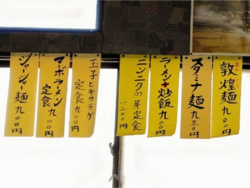 敦煌麺 九〇〇円
スタミナ麺 九五〇円
ラーメン炒飯 九〇〇円
ニンニクの芽定食
一二〇〇円
玉子とキクラゲ
定食 九〇〇円
マーボラーメン
定食 九〇〇円
ジャージャー麺 九〇〇円